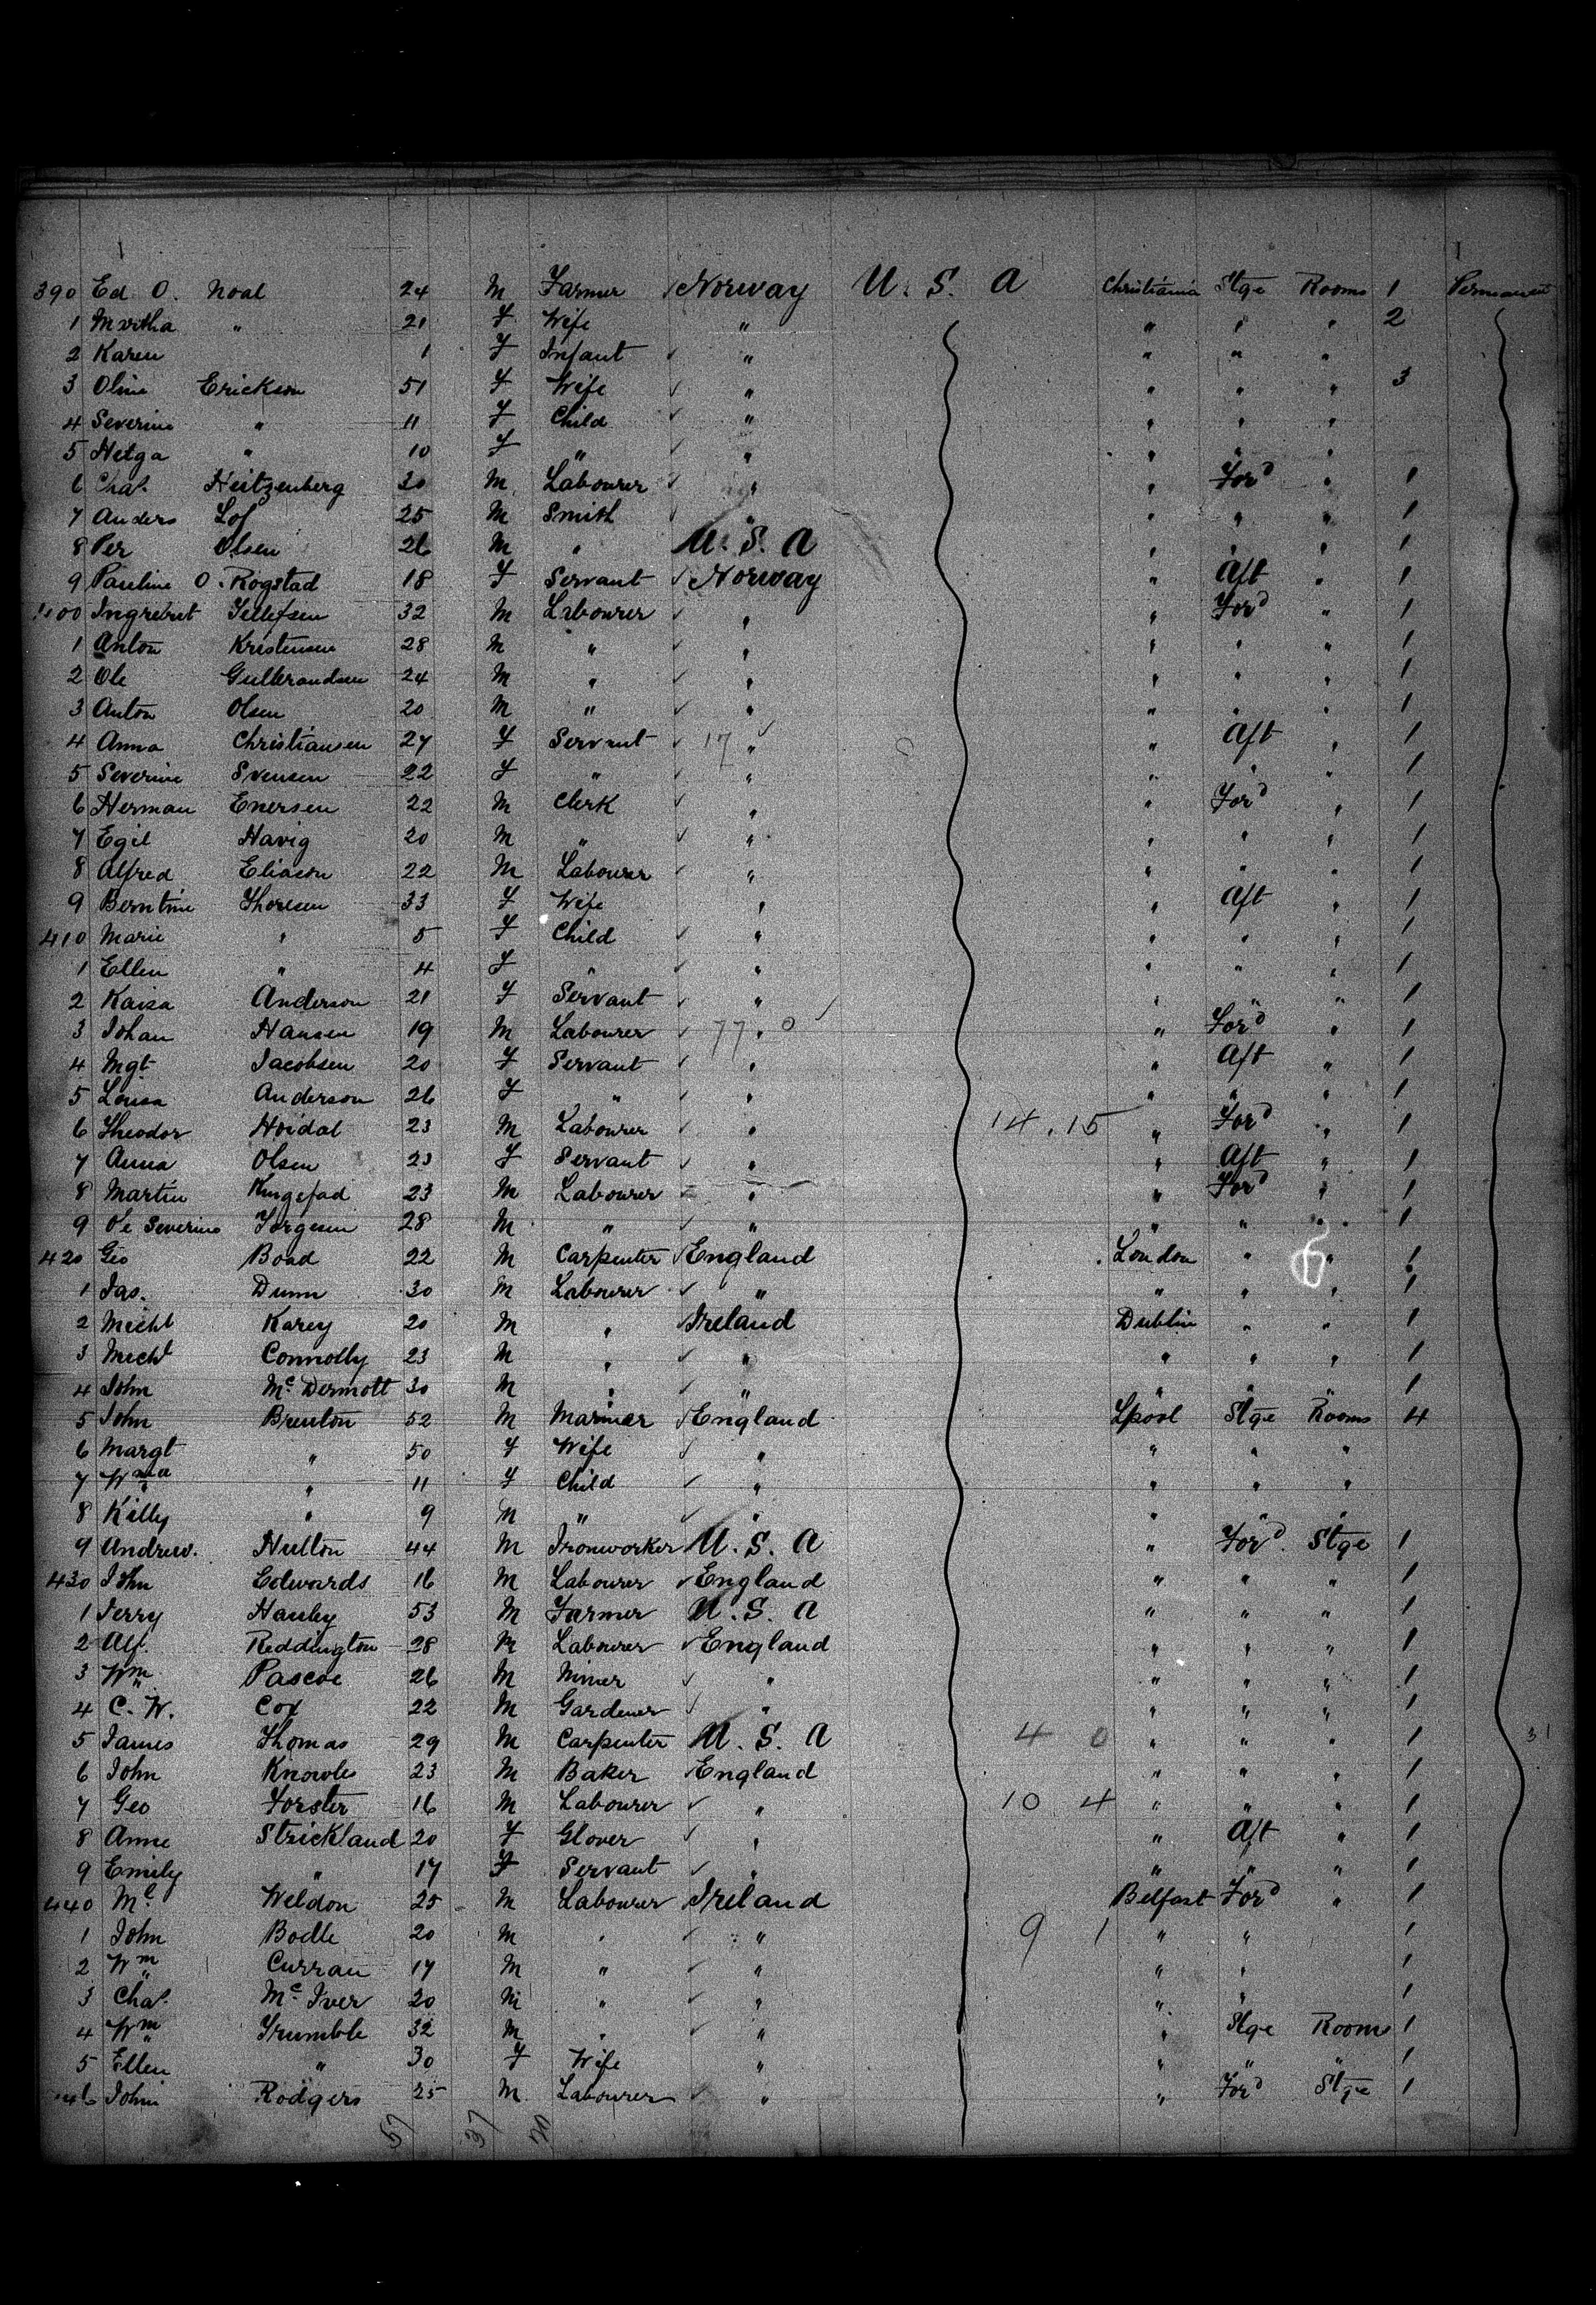 390 Ed O. Noal 24 M Farmer ✓ Norway U. S. A Christiania Stge Rooms 1 Permanent
1 Martha " 21 F Wife " " " " 2
2 Karen 1 F Infant ✓ " " " "
3 Oline Erickson 51 F Wife ✓ " " " " 3
4 Severine " 11 F Child ✓ " " " "
5 Helga " 10 F " ✓ " " " "
6 Chas. Heitzenberg 30 M Labourer ✓ " " Ford " 1
7 Anders Lof 25 M Smith ✓ " " " " 1
8 Per Olsen 26 M " U. S. A " " " 1
9 Pauline O. Rogstad 18 F Servant ✓ Norway " Aft " 1
400 Ingrebret Tellefsen 32 M Labourer ✓ " " Ford " 1
1 Anton Kristensen 28 M " ✓ " " " " 1
2 Ole Gulbrandsen 24 M " ✓ " " " " 1
3 Anton Olsen 20 M " ✓ " " " " 1
4 Anna Christiansen 27 F Servant ✓ 17 " ✓ 0 " Aft " 1
5 Severine Svensen 22 F " ✓ " " " " 1
6 Herman Enersen 22 M Clerk ✓ " " Ford " 1
7 Egil Havig 20 M " ✓ " " " " 1
8 Alfred Eliason 22 M Labourer ✓ " " " " 1
9 Berntine Thoresen 33 F Wife " " Aft " 1
410 Marie " 5 F Child ✓ " " " " 1
1 Ellen " 4 F " ✓ " " " " 1
2 Kaisa Anderson 21 F Servant ✓ " " " " 1
3 Johan Hansen 19 M Labourer ✓ 77 " 0 ✓ " Ford " 1
4 Mgt Jacobsen 20 F Servant ✓ " " Aft " 1
5 Lousa Anderson 26 F " ✓ " " " " 1
6 Theodor Hoidal 23 M Labourer ✓ " 14.15 " Ford " 1
7 Anna Olsen 23 F Servant ✓ " " Aft " 1
8 Martin 23 M Labourer " " Ford " 1
9 Ole Severins Jorgesen 28 M " ✓ " " " " 1
420 Geo Boad 22 M Carpenter ✓ England London " " 1
1 Jas. Dunn 30 M Labourer ✓ " " " " 1
2 Michl Karey 20 M " ✓ Ireland Dublin " " 1
3 Michl Connolly 23 M " ✓ " " " " 1
4 John Mc Dermott 30 M " ✓ " " " " 1
5 John Brenton 52 M Mariner ✓ England Lpool Stge Rooms 4
6 Margt " 50 F Wife ✓ " " " "
7 Wma " 11 F Child ✓ " " " "
8 Killy " 9 M " ✓ " " " "
9 Andrew. Hulton 44 M Ironworker U. S. A " Ford. Stge 1
430 John Edwards 16 M Labourer ✓ England " " " 1
1 Jerry Hanley 53 M Farmer U. S. A " " " 1
2 Alf. Reddington 28 M Labourer ✓ England " " " 1
3 Wm Pascoe 26 M Miner ✓ " " " " 1
4 C. W. Cox 22 M Gardener ✓ " " " " 1
5 James Thomas 29 M Carpenter U. S. A 4 0 " " " 1 31
6 John Knowles 23 M Baker ✓ England " " " 1
7 Geo Forster 16 M Labourer ✓ " 10 4 " " " 1
8 Anne Strickland 20 F Glover ✓ " " Aft " 1
9 Emily " 17 F Servant ✓ " " " " 1
440 Ml Weldon 25 M Labourer ✓ Ireland Belfast Ford " 1
1 John Bodle 20 M " ✓ " 9 1 " " 1
2 Wm Curran 17 M " ✓ " " " 1
3 Chas. Mc Iver 20 M " ✓ " " " 1
4 Wm Trumble 32 M " ✓ " " Stge Rooms 1
5 Ellen " 30 F Wife " " " " 1
446 John Rodgers 25 M Labourer ✓ " " Ford Stge 1
57 37 20